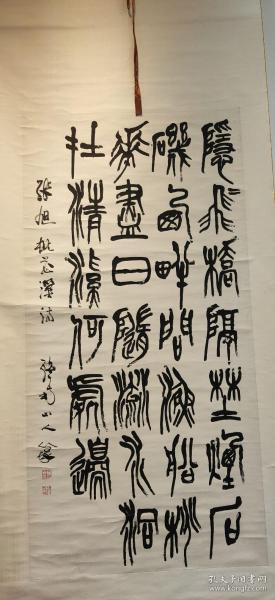 隱飛橋隔埜煙石
磯西畔問漁船桃
花盡日隨流水洞
在清溪何處邊
張旭桃花溪詩
山人篆
孔夫子旧书网